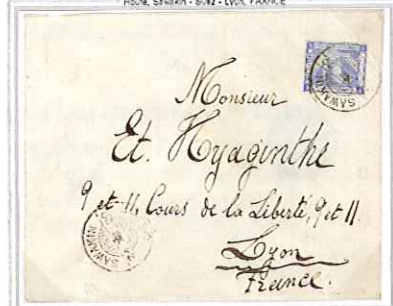 Route, Sawakin - Suez - Lyon, FRANCE
SAWAKIN
Monsieur
Et. Hyaginthe
9 et 11, Cours de la Liberté, 9 et 11.
SAWAKIN
Lyon
France.